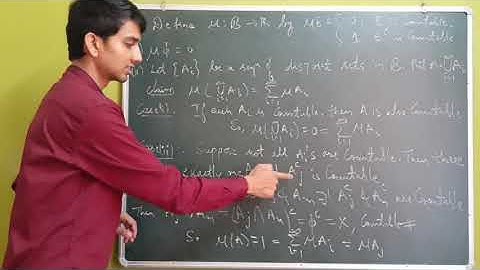 Define μ: B → R by μE = { 0, E is countable,
1, E^c is countable
μφ = 0
Let {A_i} be a seqn of disjoint sets in B. Put A = ∪ A_i
Claim: μ(∪ A_i) = Σ μA_i
Case(i). If each A_i is countable, then A is also countable.
So, μ(∪ A_i) = 0 = Σ μA_i
Suppose not all A_i's are countable. Then there
exactly one is countable
A_j^c are countable
= φ^c = X, countable
So μ(A) = 1 = Σ μA_i = μA_j